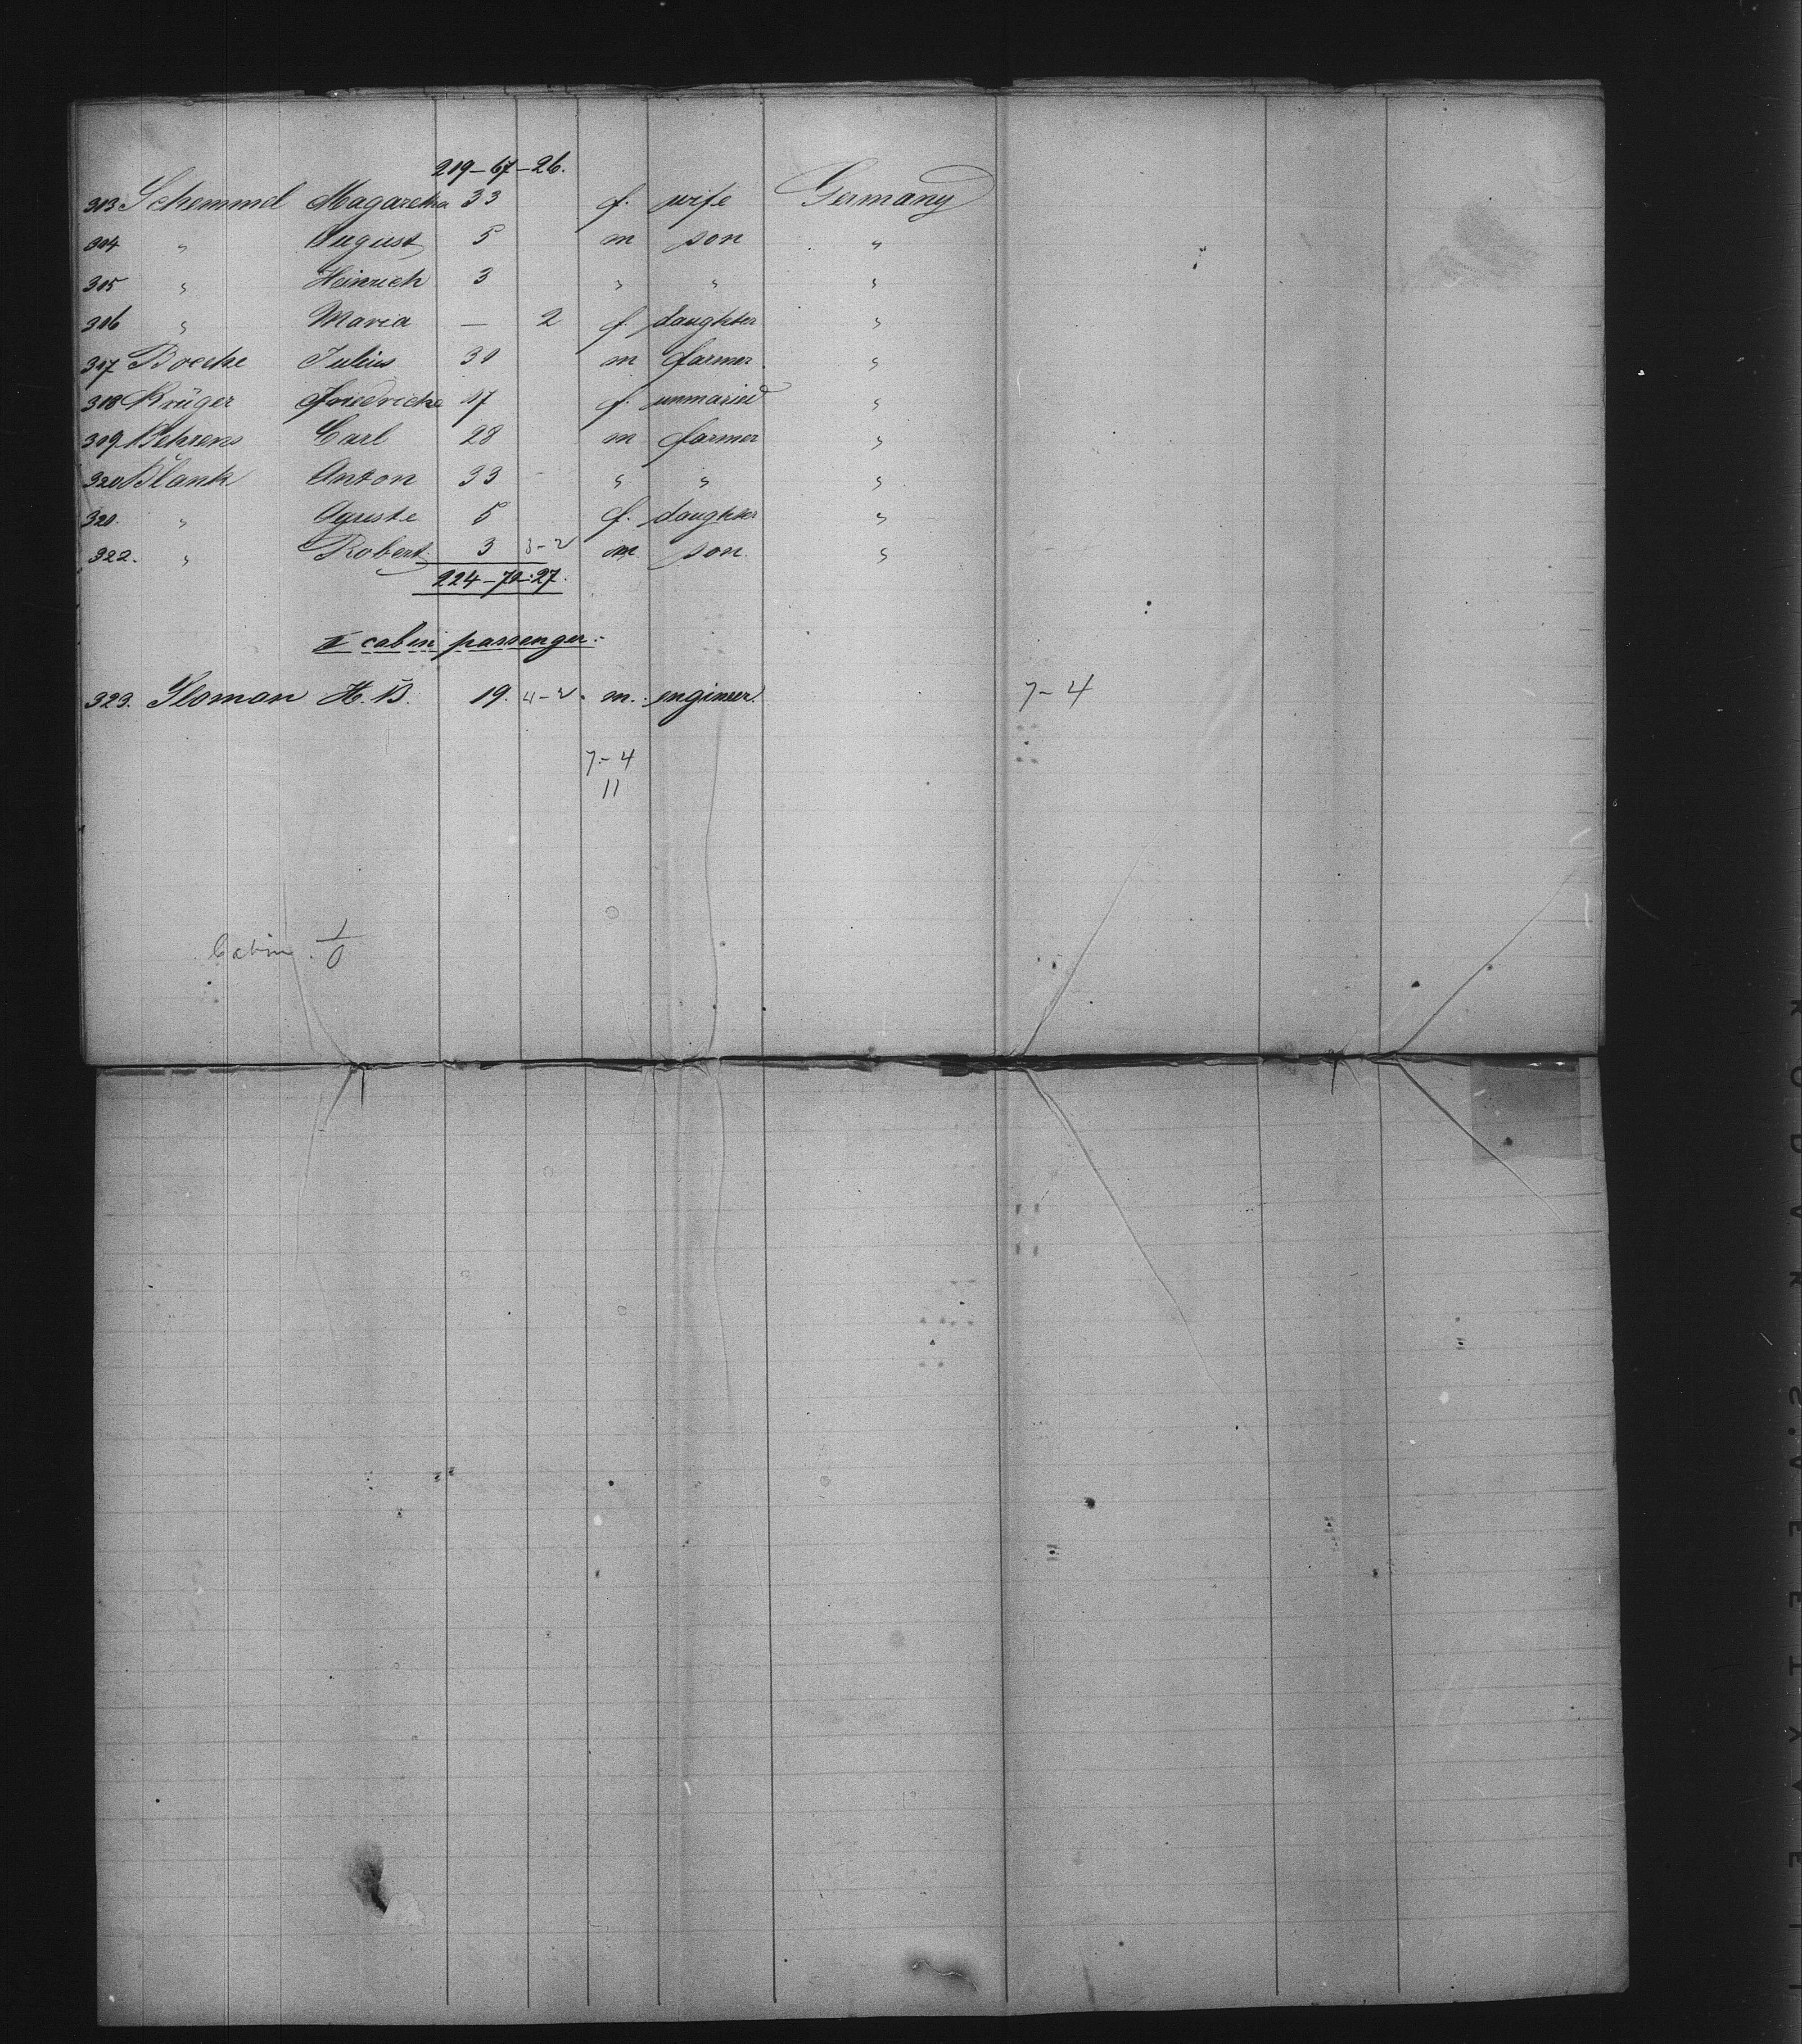 219-67-26.
313 Schemmel Magaretha 33 f. wife Germany
314 " August 5 m son "
315 " Heinrich 3 " " "
316 " Maria — 2 f. daughter "
317 Julius 30 m farmer "
318 Krüger Friedricke 17 f. unmaried "
319 Behrens Carl 28 m farmer "
320 Blank Anton 33 " " "
320. " Aguste 5 f. daughter "
322. " Robert 3 3-2 m son. "
224-72-27.
II cabin passenger:
323. Sloman H. B. 19. 4-2 m. engineer. 7-4
7-4
11
Cabin. 1/0